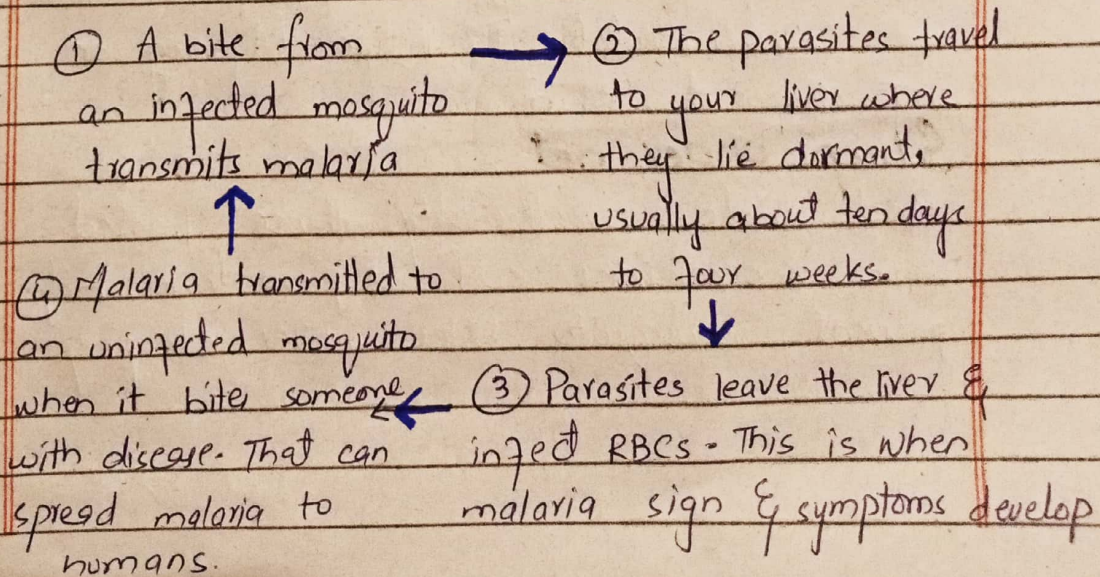 ① A bite from
an infected mosquito
transmits malaria
② The parasites travel
to your liver where
they lie dormant,
usually about ten days
to four weeks.
③ Parasites leave the liver &
infect RBCs. This is when
malaria sign & symptoms develop
④ Malaria transmitted to
an uninfected mosquito
when it bite, someone
with disease. That can
spread malaria to
humans.